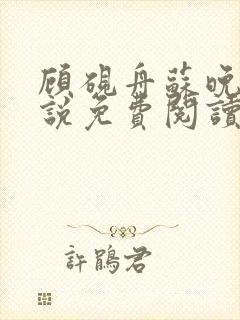 顾硯舟蘇晚
說免費閱讀
許鵑君